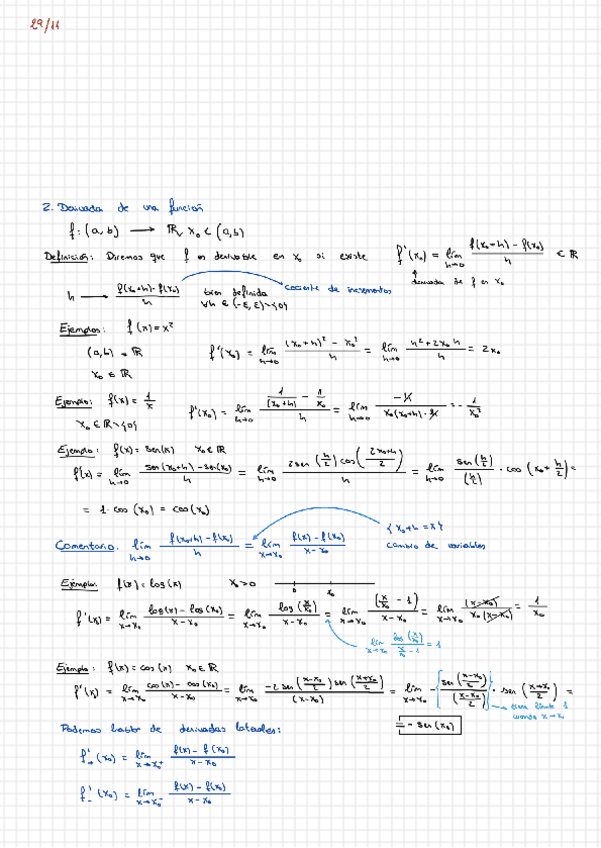 29/11
2. Derivada de una función
f: (a,b) ⟶ ℝ, x₀ ∈ (a,b)
Definición: Diremos que f es derivable en x₀ si existe f'(x₀) = lím_{h→0} (f(x₀+h) - f(x₀))/h ∈ ℝ
derivada de f en x₀
h ⟶ (f(x₀+h) - f(x₀))/h bien definida ∀h ∈ (-ε, ε)∖{0} cociente de incrementos
Ejemplos: f(x) = x²
(a,b) = ℝ f'(x₀) = lím_{h→0} ((x₀+h)² - x₀²)/h = lím_{h→0} (h² + 2x₀h)/h = 2x₀
x₀ ∈ ℝ
Ejemplo: f(x) = 1/x
x₀ ∈ ℝ∖{0} f'(x₀) = lím_{h→0} (1/(x₀+h) - 1/x₀)/h = lím_{h→0} -h/(x₀(x₀+h)·h) = -1/x₀²
Ejemplo: f(x) = sen(x) x₀ ∈ ℝ
f'(x) = lím_{h→0} (sen(x₀+h) - sen(x₀))/h = lím_{h→0} (2 sen(h/2) cos((2x₀+h)/2))/h = lím_{h→0} sen(h/2)/(h/2) · cos(x₀ + h/2) =
= 1 · cos(x₀) = cos(x₀)
Comentario. lím_{h→0} (f(x₀+h) - f(x₀))/h = lím_{x→x₀} (f(x) - f(x₀))/(x - x₀) {x₀+h = x}
cambio de variables
Ejemplo: f(x) = log(x) x₀ > 0 0 x₀
f'(x₀) = lím_{x→x₀} (log(x) - log(x₀))/(x - x₀) = lím_{x→x₀} log(x/x₀)/(x - x₀) = lím_{x→x₀} (x/x₀ - 1)/(x - x₀) = lím_{x→x₀} (x - x₀)/(x₀(x - x₀)) = 1/x₀
lím_{x→x₀} log(x/x₀)/(x/x₀ - 1) = 1
Ejemplo: f(x) = cos(x) x₀ ∈ ℝ
f'(x₀) = lím_{x→x₀} (cos(x) - cos(x₀))/(x - x₀) = lím_{x→x₀} (-2 sen((x-x₀)/2) sen((x+x₀)/2))/(x - x₀) = lím_{x→x₀} -[sen((x-x₀)/2)/((x-x₀)/2)] · sen((x+x₀)/2) =
tiene límite 1 cuando x→x₀
= - sen(x₀)
Podemos hablar de derivadas laterales:
f'₊(x₀) = lím_{x→x₀⁺} (f(x) - f(x₀))/(x - x₀)
f'₋(x₀) = lím_{x→x₀⁻} (f(x) - f(x₀))/(x - x₀)